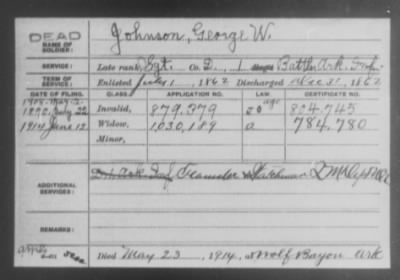 DEAD
NAME OF SOLDIER: Johnson, George W.
SERVICE: Late rank, Sgt. Co. D, 1 Battln Ark. Inf.
TERM OF SERVICE: Enlisted July 1, 1862 Discharged Dec 31, 1862
DATE OF FILING. CLASS. APPLICATION NO. LAW. CERTIFICATE NO.
Invalid, 879,379 age 824,745
1914 June 12 Widow, 1030,189 a 784,780
Minor,
ADDITIONAL SERVICES: Teamster Watchman
REMARKS:
Died May 23, 1914, at Wolf Bayou Ark